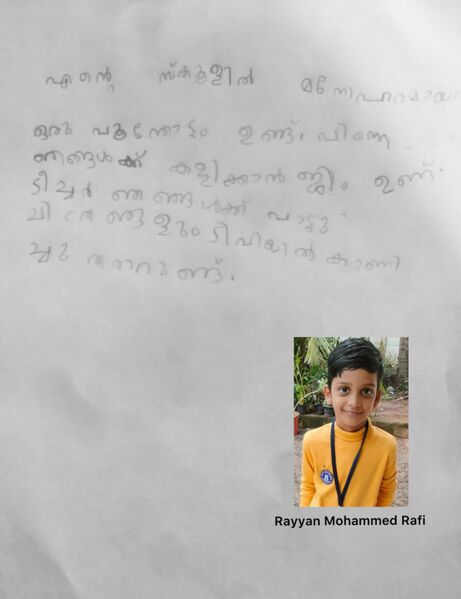 എന്റെ സ്കൂളിൽ മനോഹരമായ
ഒരു പൂന്തോട്ടം ഉണ്ട്. പിന്നെ
ഞങ്ങൾക്ക് കളിക്കാൻ ജിം ഉണ്ട്
ടീച്ചർ ഞങ്ങൾക്ക് പാട്ടു
ചിത്രങ്ങളും ടിവിയിൽ കാണി
ച്ചു തരാറുണ്ട്.
Rayyan Mohammed Rafi